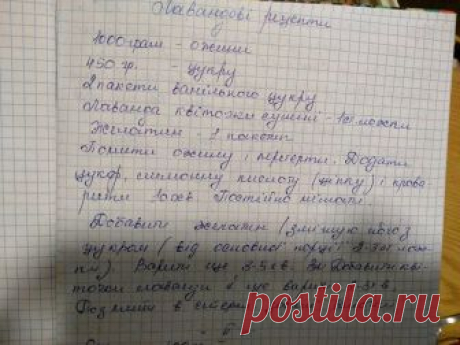 Лавандові рецепти
1000 грам - ожини
450 гр. - цукру
2 пакети ванільного цукру
Лаванда квіточки сушені - 1 ст ложки
Желатин - 2 пакети
Помити ожину і перетерти. Додати
цукор, лимонну кислоту (щіпку) і прова
рити 10 хв. Постійно мішати.
Добавити желатин (змішую його з
цукром (від основної порції 2-3 ст лож
ки). Варити ще 3-5 хв. Добавити кві
точки лаванди і ще варити 3 хв.
Розлити в
postila.ru